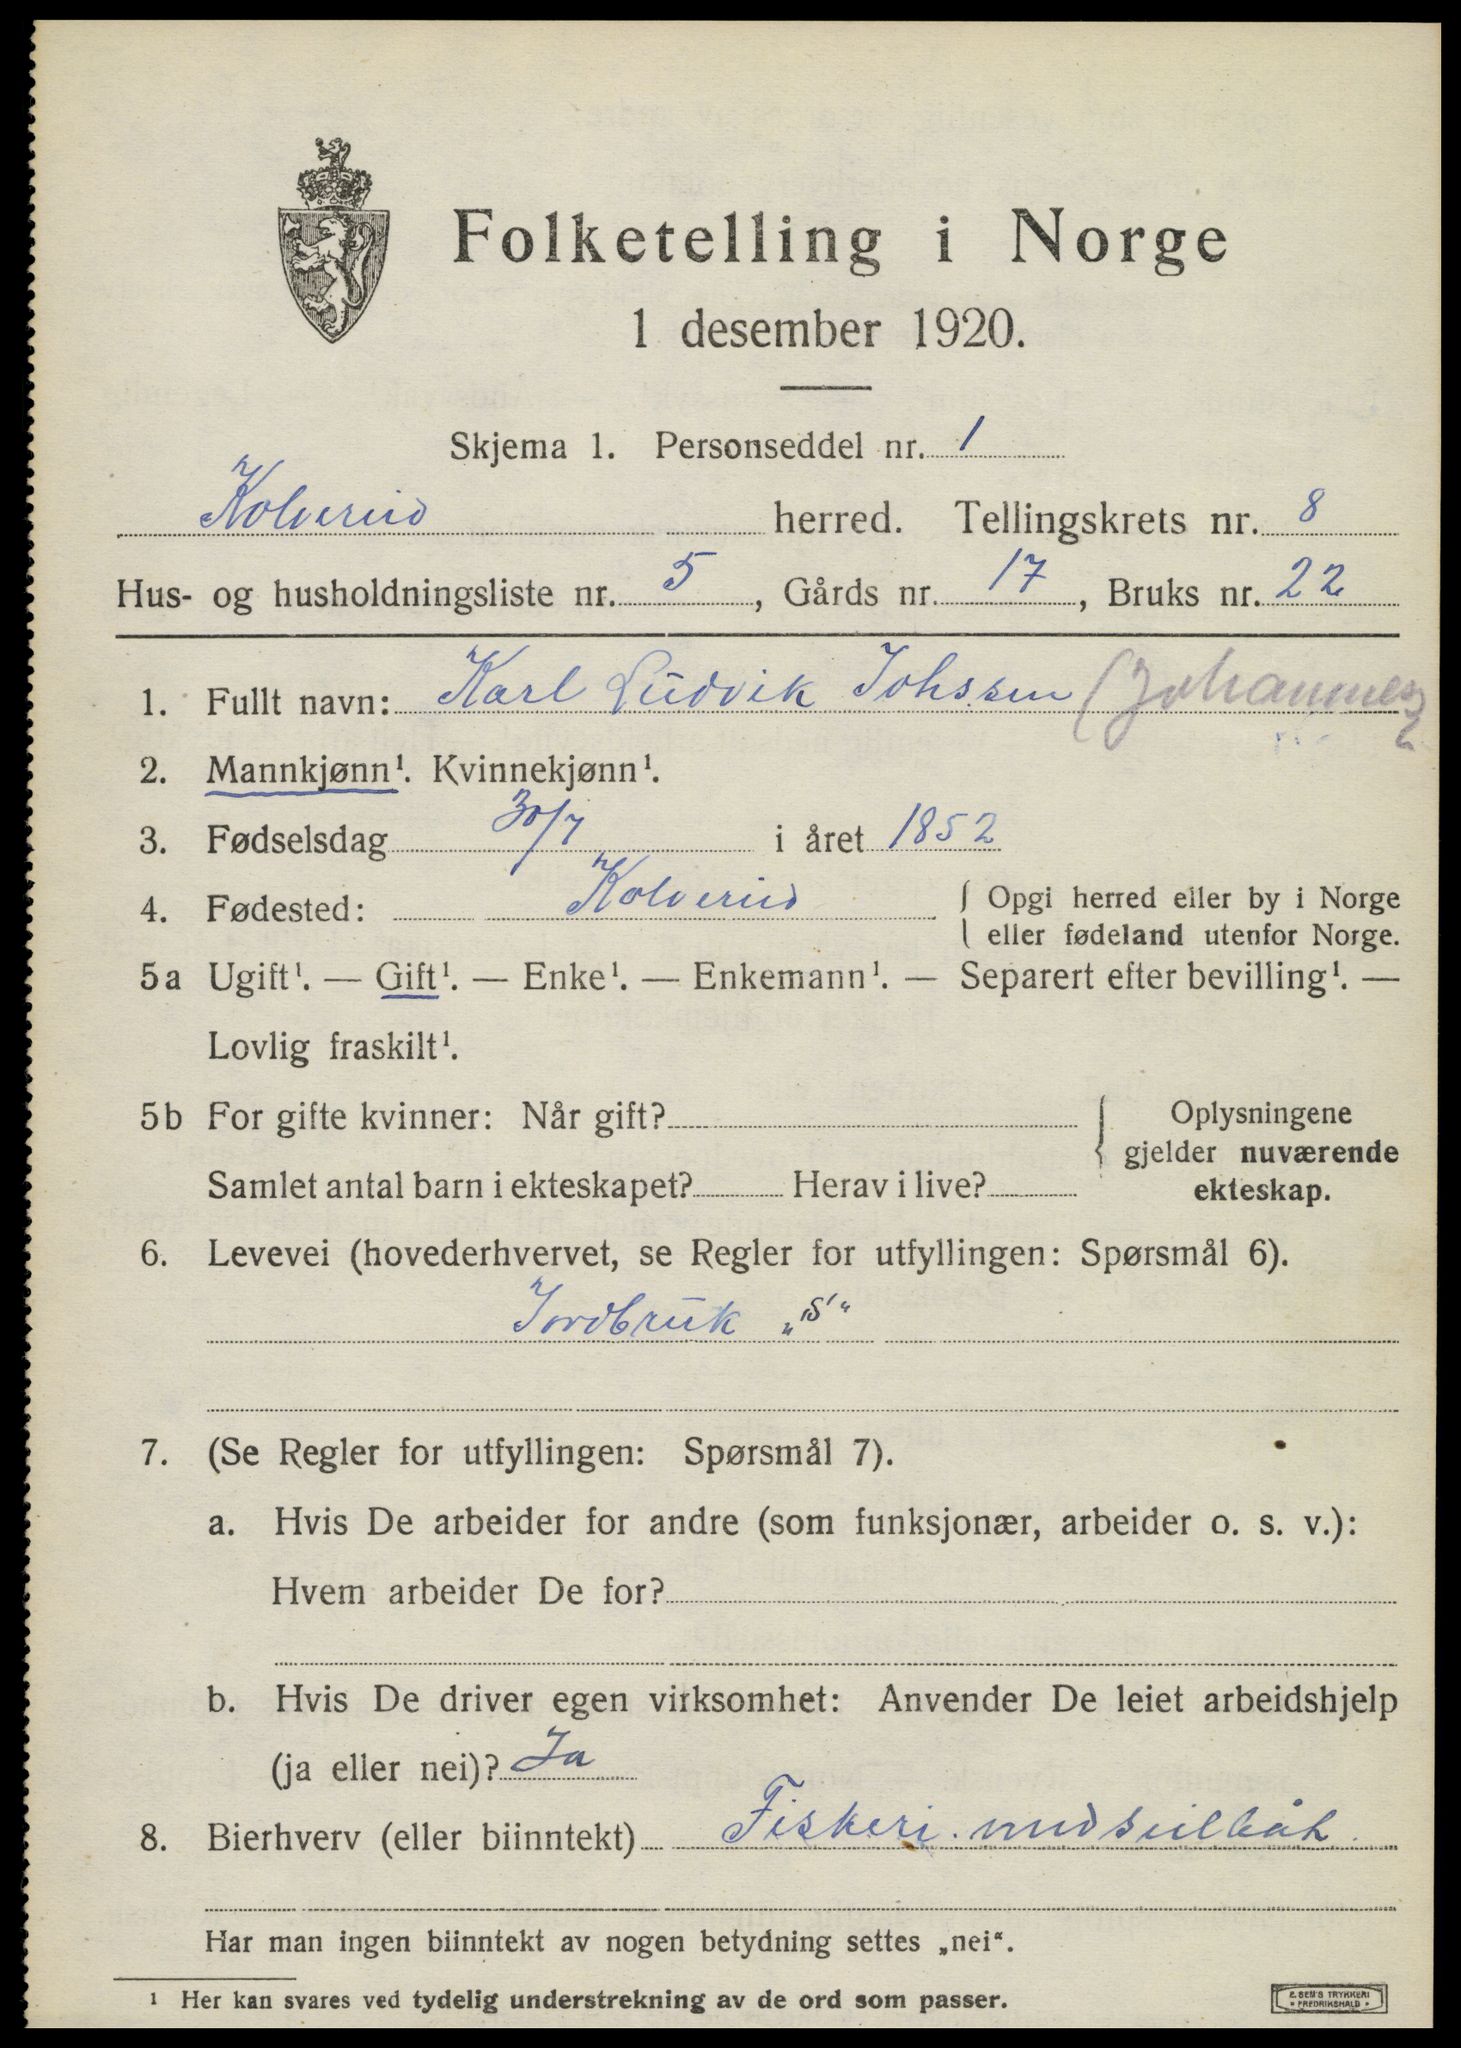 Folketelling i Norge
1 desember 1920.
Skjema 1. Personseddel nr. 1
Kolvereid herred. Tellingskrets nr. 8
Hus- og husholdningsliste nr. 5, Gårds nr. 17, Bruks nr. 22
1. Fullt navn: Karl Ludvik Johssen (Johannes
2. Mannkjønn¹. Kvinnekjønn¹.
3. Fødselsdag 30/7 i året 1852
4. Fødested: Kolvereid { Opgi herred eller by i Norge
eller fødeland utenfor Norge.
5a Ugift¹. — Gift¹. — Enke¹. — Enkemann¹. — Separert efter bevilling¹. —
Lovlig fraskilt¹.
5b For gifte kvinner: Når gift? { Oplysningene
gjelder nuværende
Samlet antal barn i ekteskapet? Herav i live? ekteskap.
6. Levevei (hovederhvervet, se Regler for utfyllingen: Spørsmål 6).
Jordbruk „S“
7. (Se Regler for utfyllingen: Spørsmål 7).
a. Hvis De arbeider for andre (som funksjonær, arbeider o. s. v.):
Hvem arbeider De for?
b. Hvis De driver egen virksomhet: Anvender De leiet arbeidshjelp
(ja eller nei)? Ja
8. Bierhverv (eller biinntekt) Fiskeri. med seilbåt
Har man ingen biinntekt av nogen betydning settes „nei“.
¹ Her kan svares ved tydelig understrekning av de ord som passer.
E. SEM'S TRYKKERI
• FREDRIKSHALD •